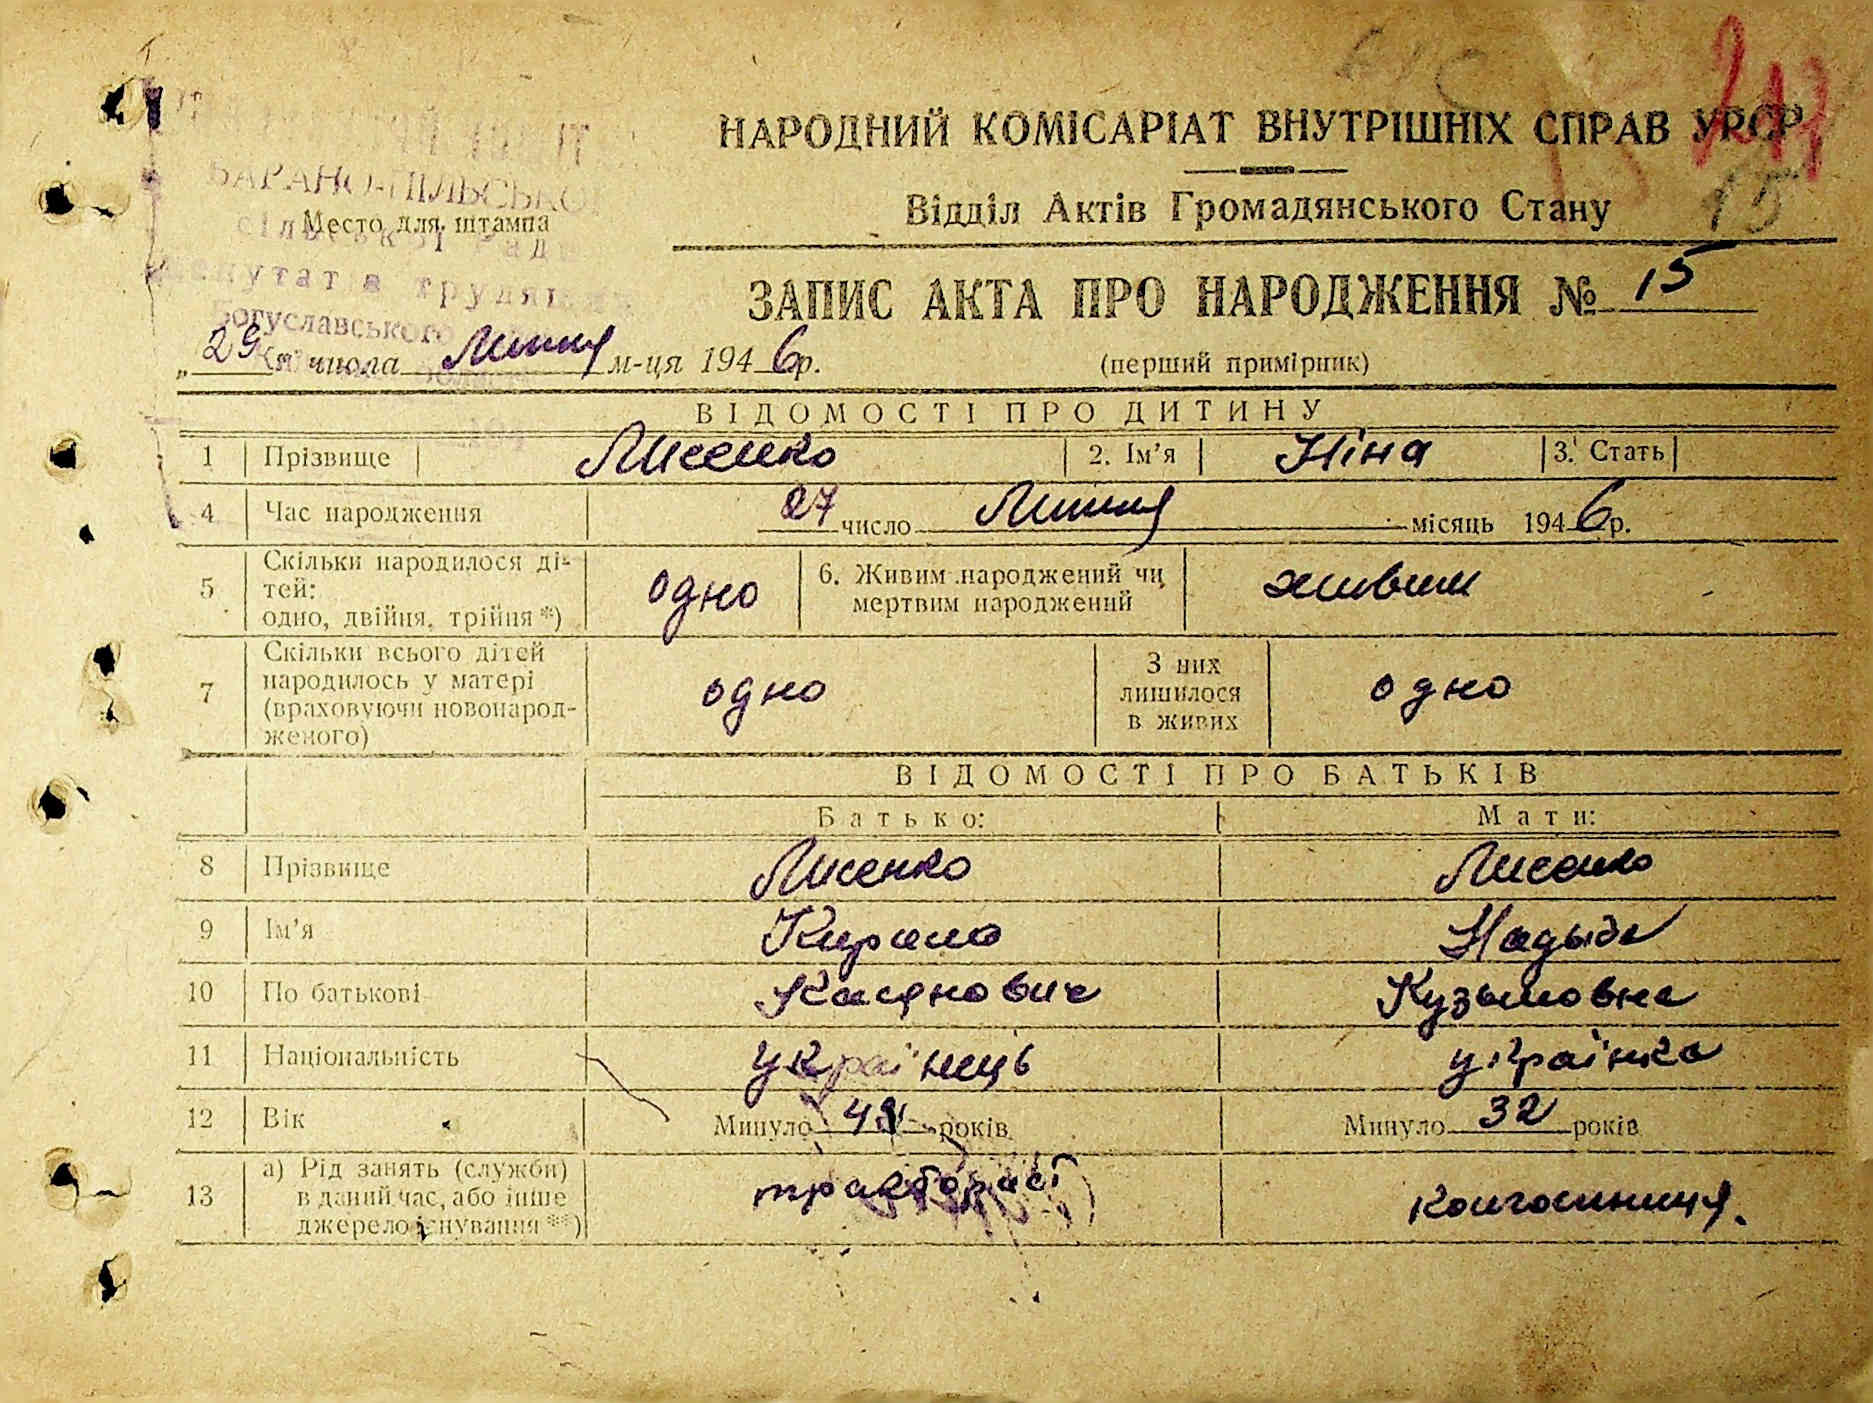 НАРОДНИЙ КОМІСАРІАТ ВНУТРІШНІХ СПРАВ УРСР
15
Відділ Актів Громадянського Стану
БАРАНО-ПІЛЬСЬКОЇ
Место для штампа
сільської Ради
депутатів трудящих
Богуславського
ЗАПИС АКТА ПРО НАРОДЖЕННЯ № 15
„29 числа Липня м-ця 1946р.
(перший примірник)
ВІДОМОСТІ ПРО ДИТИНУ
1 Прізвище Лисенко 2. Ім’я Ніна 3. Стать
4 Час народження 27 число Липня місяць 1946р.
5 Скільки народилося дітей: одно, двійня, трійня *) одно 6. Живим народжений чи мертвим народжений живим
7 Скільки всього дітей народилось у матері (враховуючи новонародженого) одно З них лишилося в живих одно
ВІДОМОСТІ ПРО БАТЬКІВ
Батько: Мати:
8 Прізвище Лисенко Лисенко
9 Ім’я Кирило Надыда
10 По батькові Касянович Кузьмовна
11 Національність українець українка
12 Вік Минуло років Минуло 32 років
13 а) Рід занять (служби) в даний час, або інше джерело існування **) тракторист колгоспниця.